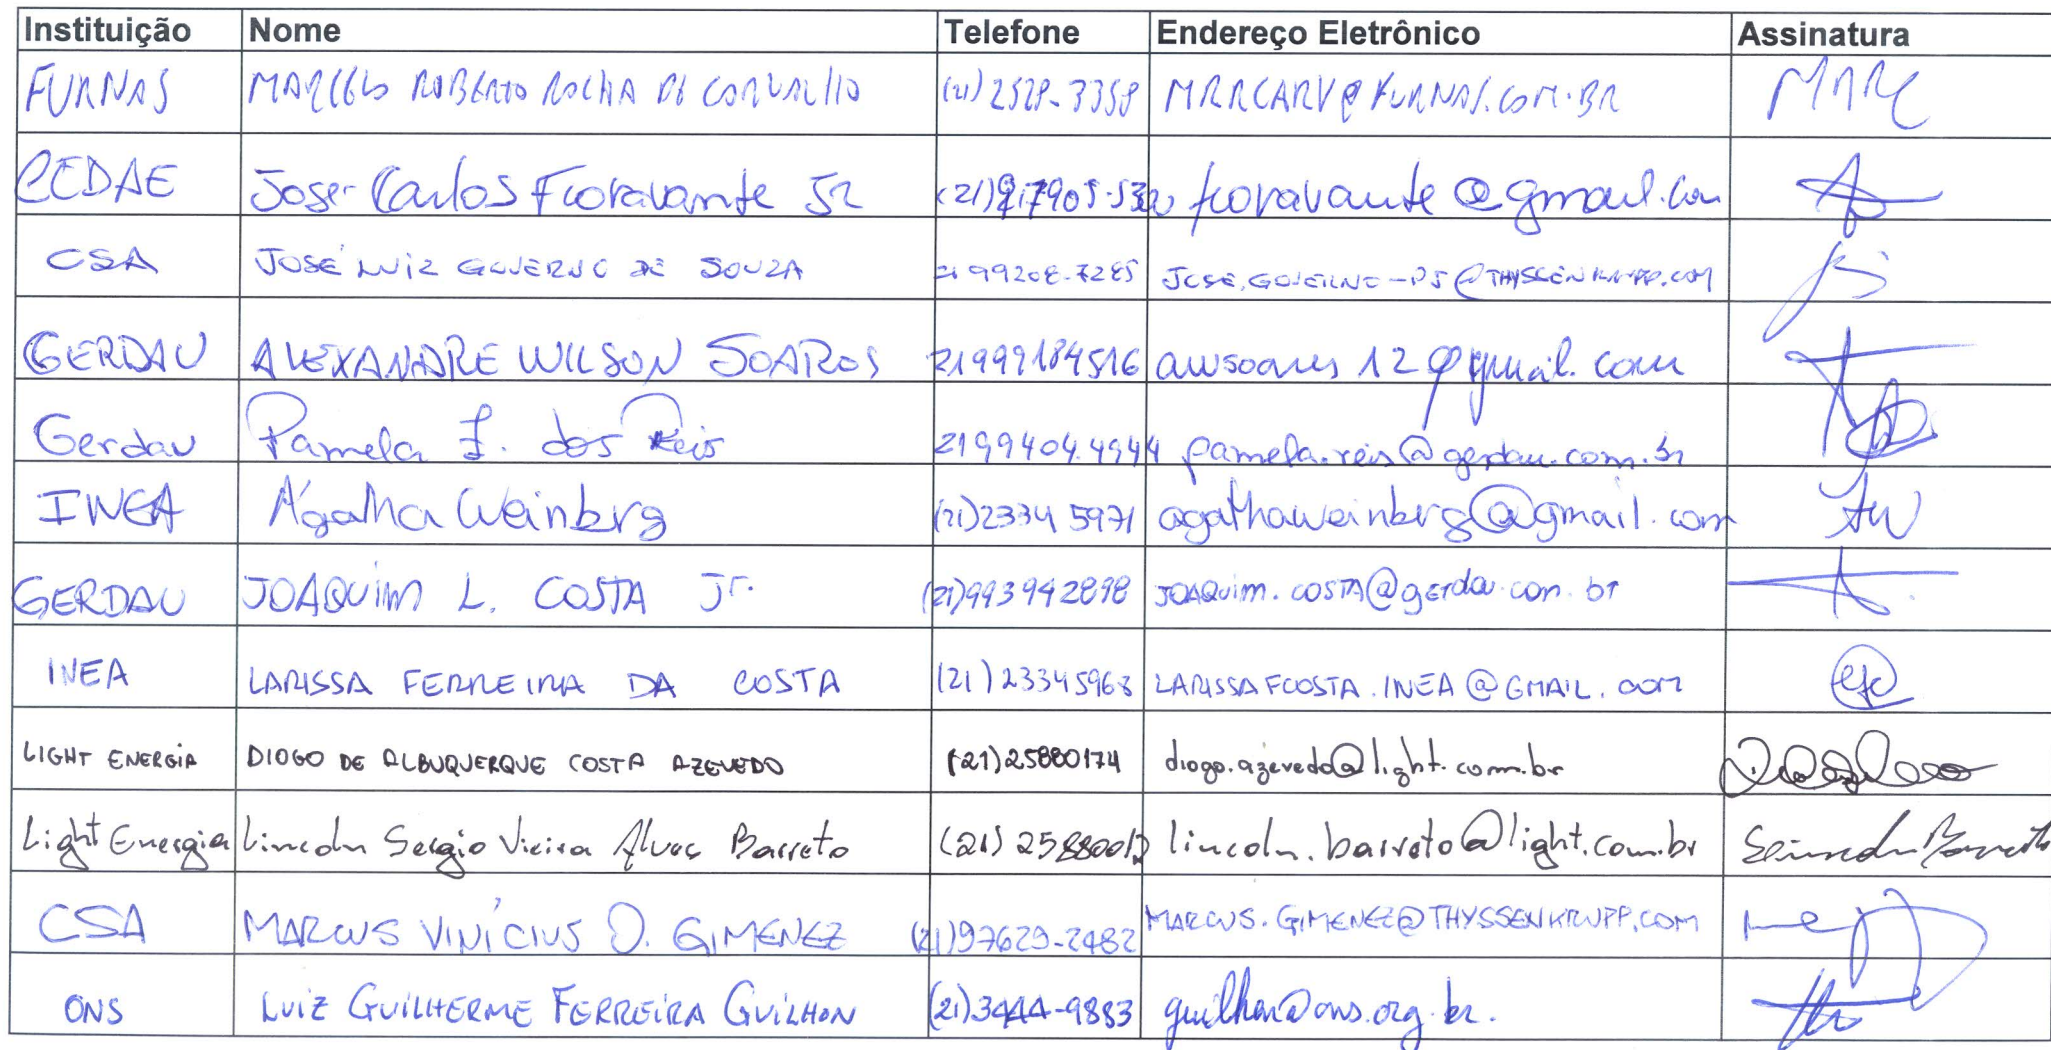 Instituição Nome Telefone Endereço Eletrônico Assinatura
FURNAS MARCELO ROBERTO ROCHA DE CARVALHO (21) 2528-3358 MRRCARV@FURNAS.COM.BR
CEDAE José Carlos Fioravante Jr (21) fioravante@gmail.com
CSA JOSÉ LUIZ GOVERNO DE SOUZA 21 99208-7285 JOSE.GOVERNO-PS@THYSSENKRUPP.COM
GERDAU ALEXANDRE WILSON SOARES 21999184516 awsoares12@gmail.com
Gerdau Pamela F. dos Reis 2199404.4944 pamela.reis@gerdau.com.br
INEA Ágatha Weinberg (21)2334 5971 agathaweinberg@gmail.com AW
GERDAU JOAQUIM L. COSTA Jr. (21)993942898 JOAQUIM.COSTA@gerdau.com.br
INEA LARISSA FERREIRA DA COSTA (21)23345968 LARISSAFCOSTA.INEA@GMAIL.COM
LIGHT ENERGIA DIOGO DE ALBUQUERQUE COSTA AZEVEDO (21)25880174 diogo.azevedo@light.com.br
Light Energia Lincoln Sergio Vieira Alves Barreto (21) lincoln.barreto@light.com.br
CSA MARCUS VINÍCIUS O. GIMENEZ (21)97629-2482 MARCUS.GIMENEZ@THYSSENKRUPP.COM
ONS LUIZ GUILHERME FERREIRA GUILHON (21)3444-9883 guilhon@ons.org.br.